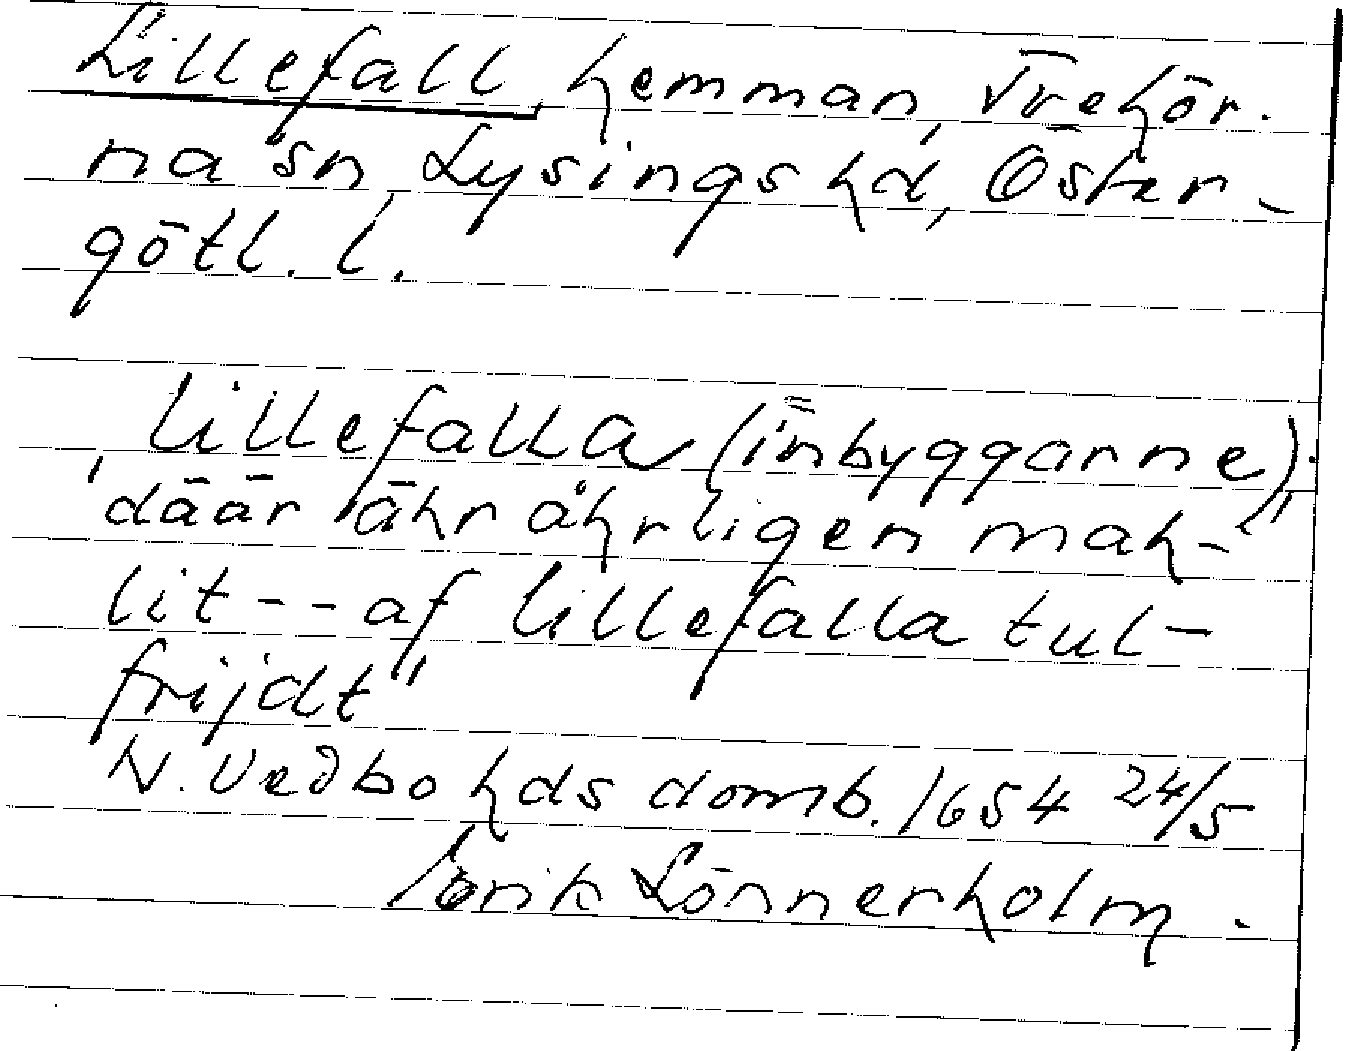 Lillefall, hemman, Trehör-
na sn, Lysings hd, Öster-
götl. l.
Lillefalla (inbyggarne),
"däär ähr åhrligen mah-"
lit -- af Lillefalla tul-
frijdt"
N. Vedbo hds domb. 1654 24/5
Erik Lönnerholm.